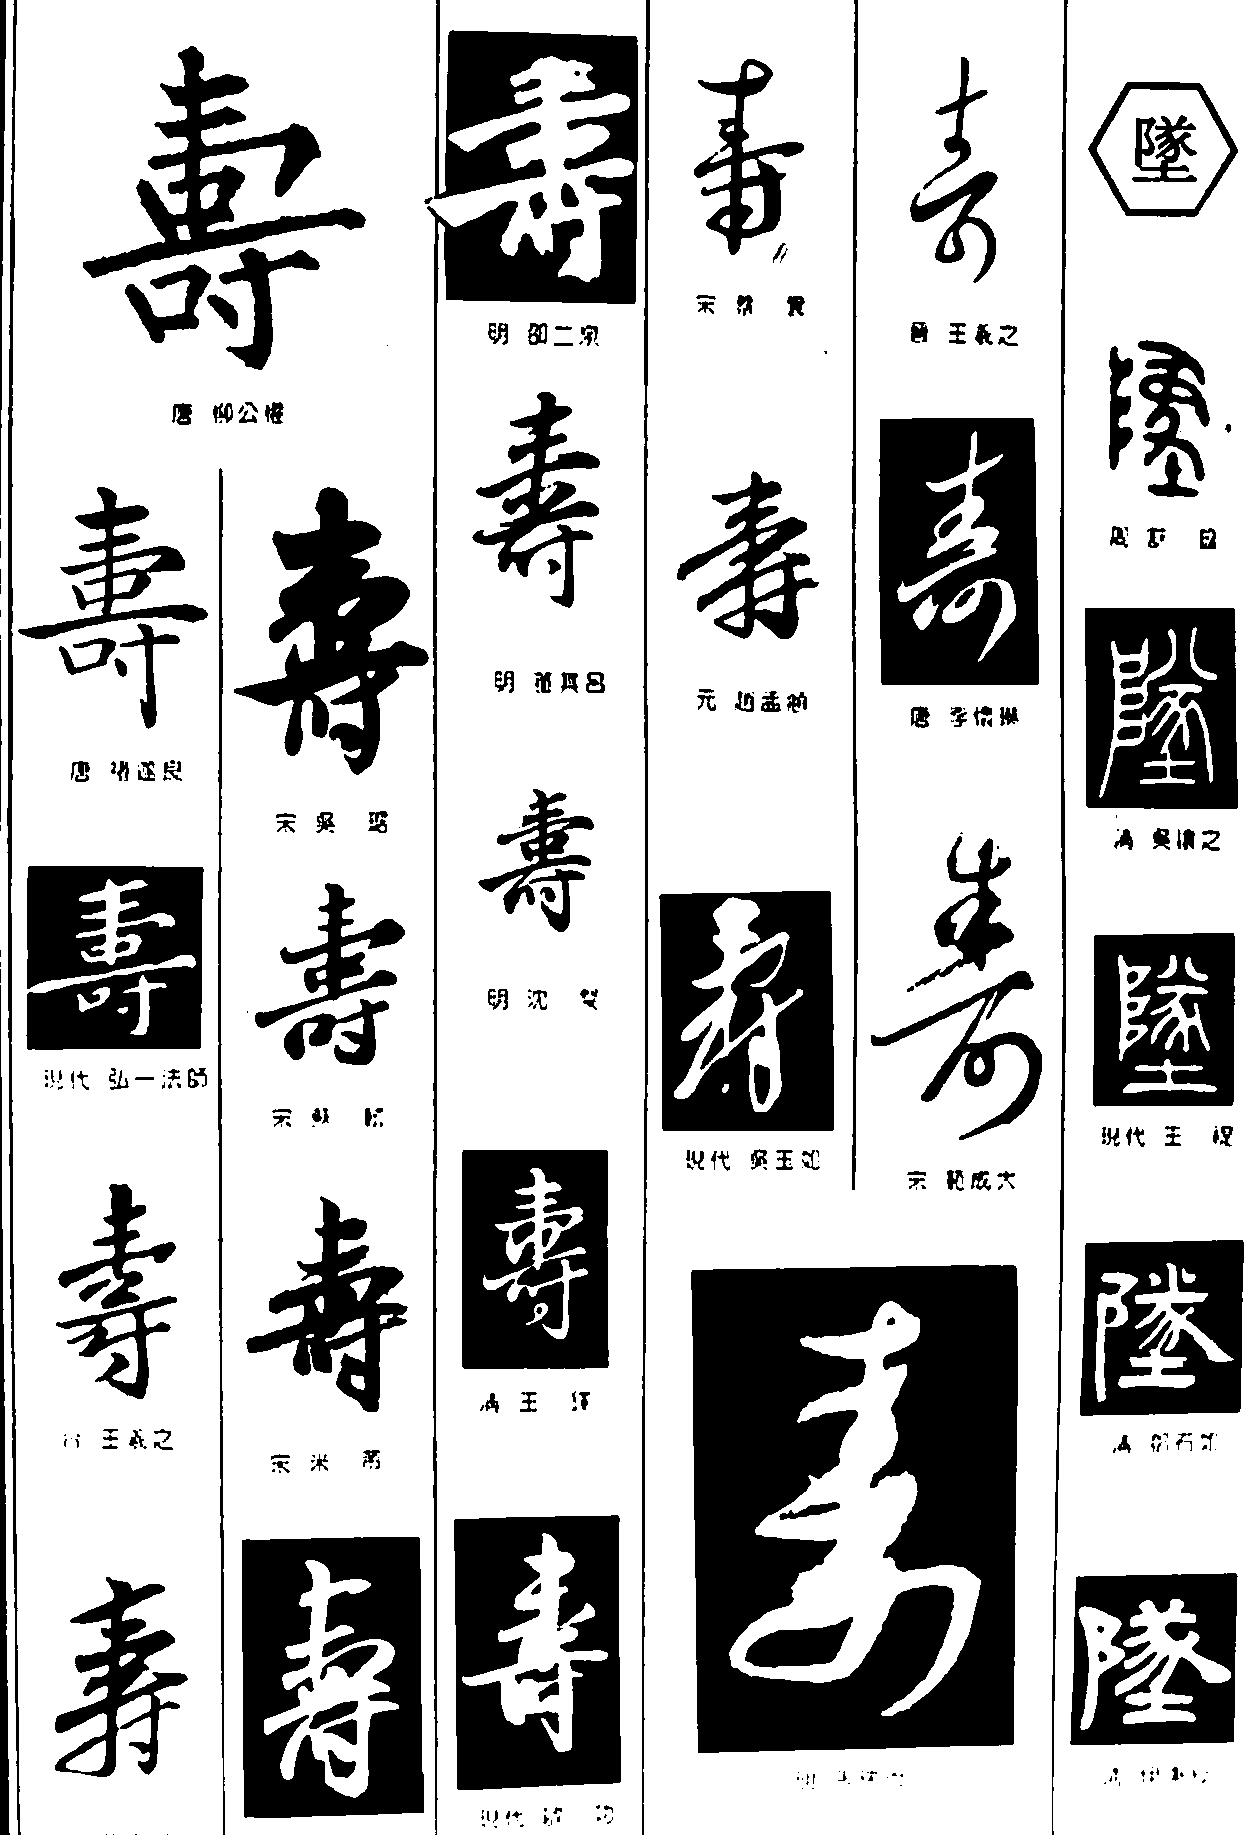 壽
唐 柳公權
壽
唐 褚遂良
壽
現代 弘一法師
壽
晉 王羲之
壽
壽
宋 吳 琚
壽
宋 蘇 軾
壽
宋 米 芾
壽
壽
明
壽
明 董其昌
壽
明 沈 粲
壽
清 王 鐸
壽
現代
壽
宋 蔡 襄
壽
元 趙孟頫
壽
現代 吳玉如
壽
晉 王羲之
壽
唐 李懷琳
壽
宋 范成大
壽
明
墜
墜
周
墜
清 吳讓之
墜
現代 王 禔
墜
清 鄧石如
墜
清 伊秉綬